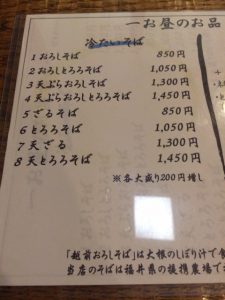 一お昼のお品
冷たいそば
1 おろしそば 850円
2 おろしとろろそば 1,050円
3 天ぷらおろしそば 1,300円
4 天ぷらおろしとろろそば 1,450円
5 ざるそば 850円
6 とろろそば 1,050円
7 天ざる 1,300円
8 天とろろそば 1,450円
※各大盛り200円増し
「越前おろしそば」は大根のしぼり汁で
当店のそばは福井県の提携農場で